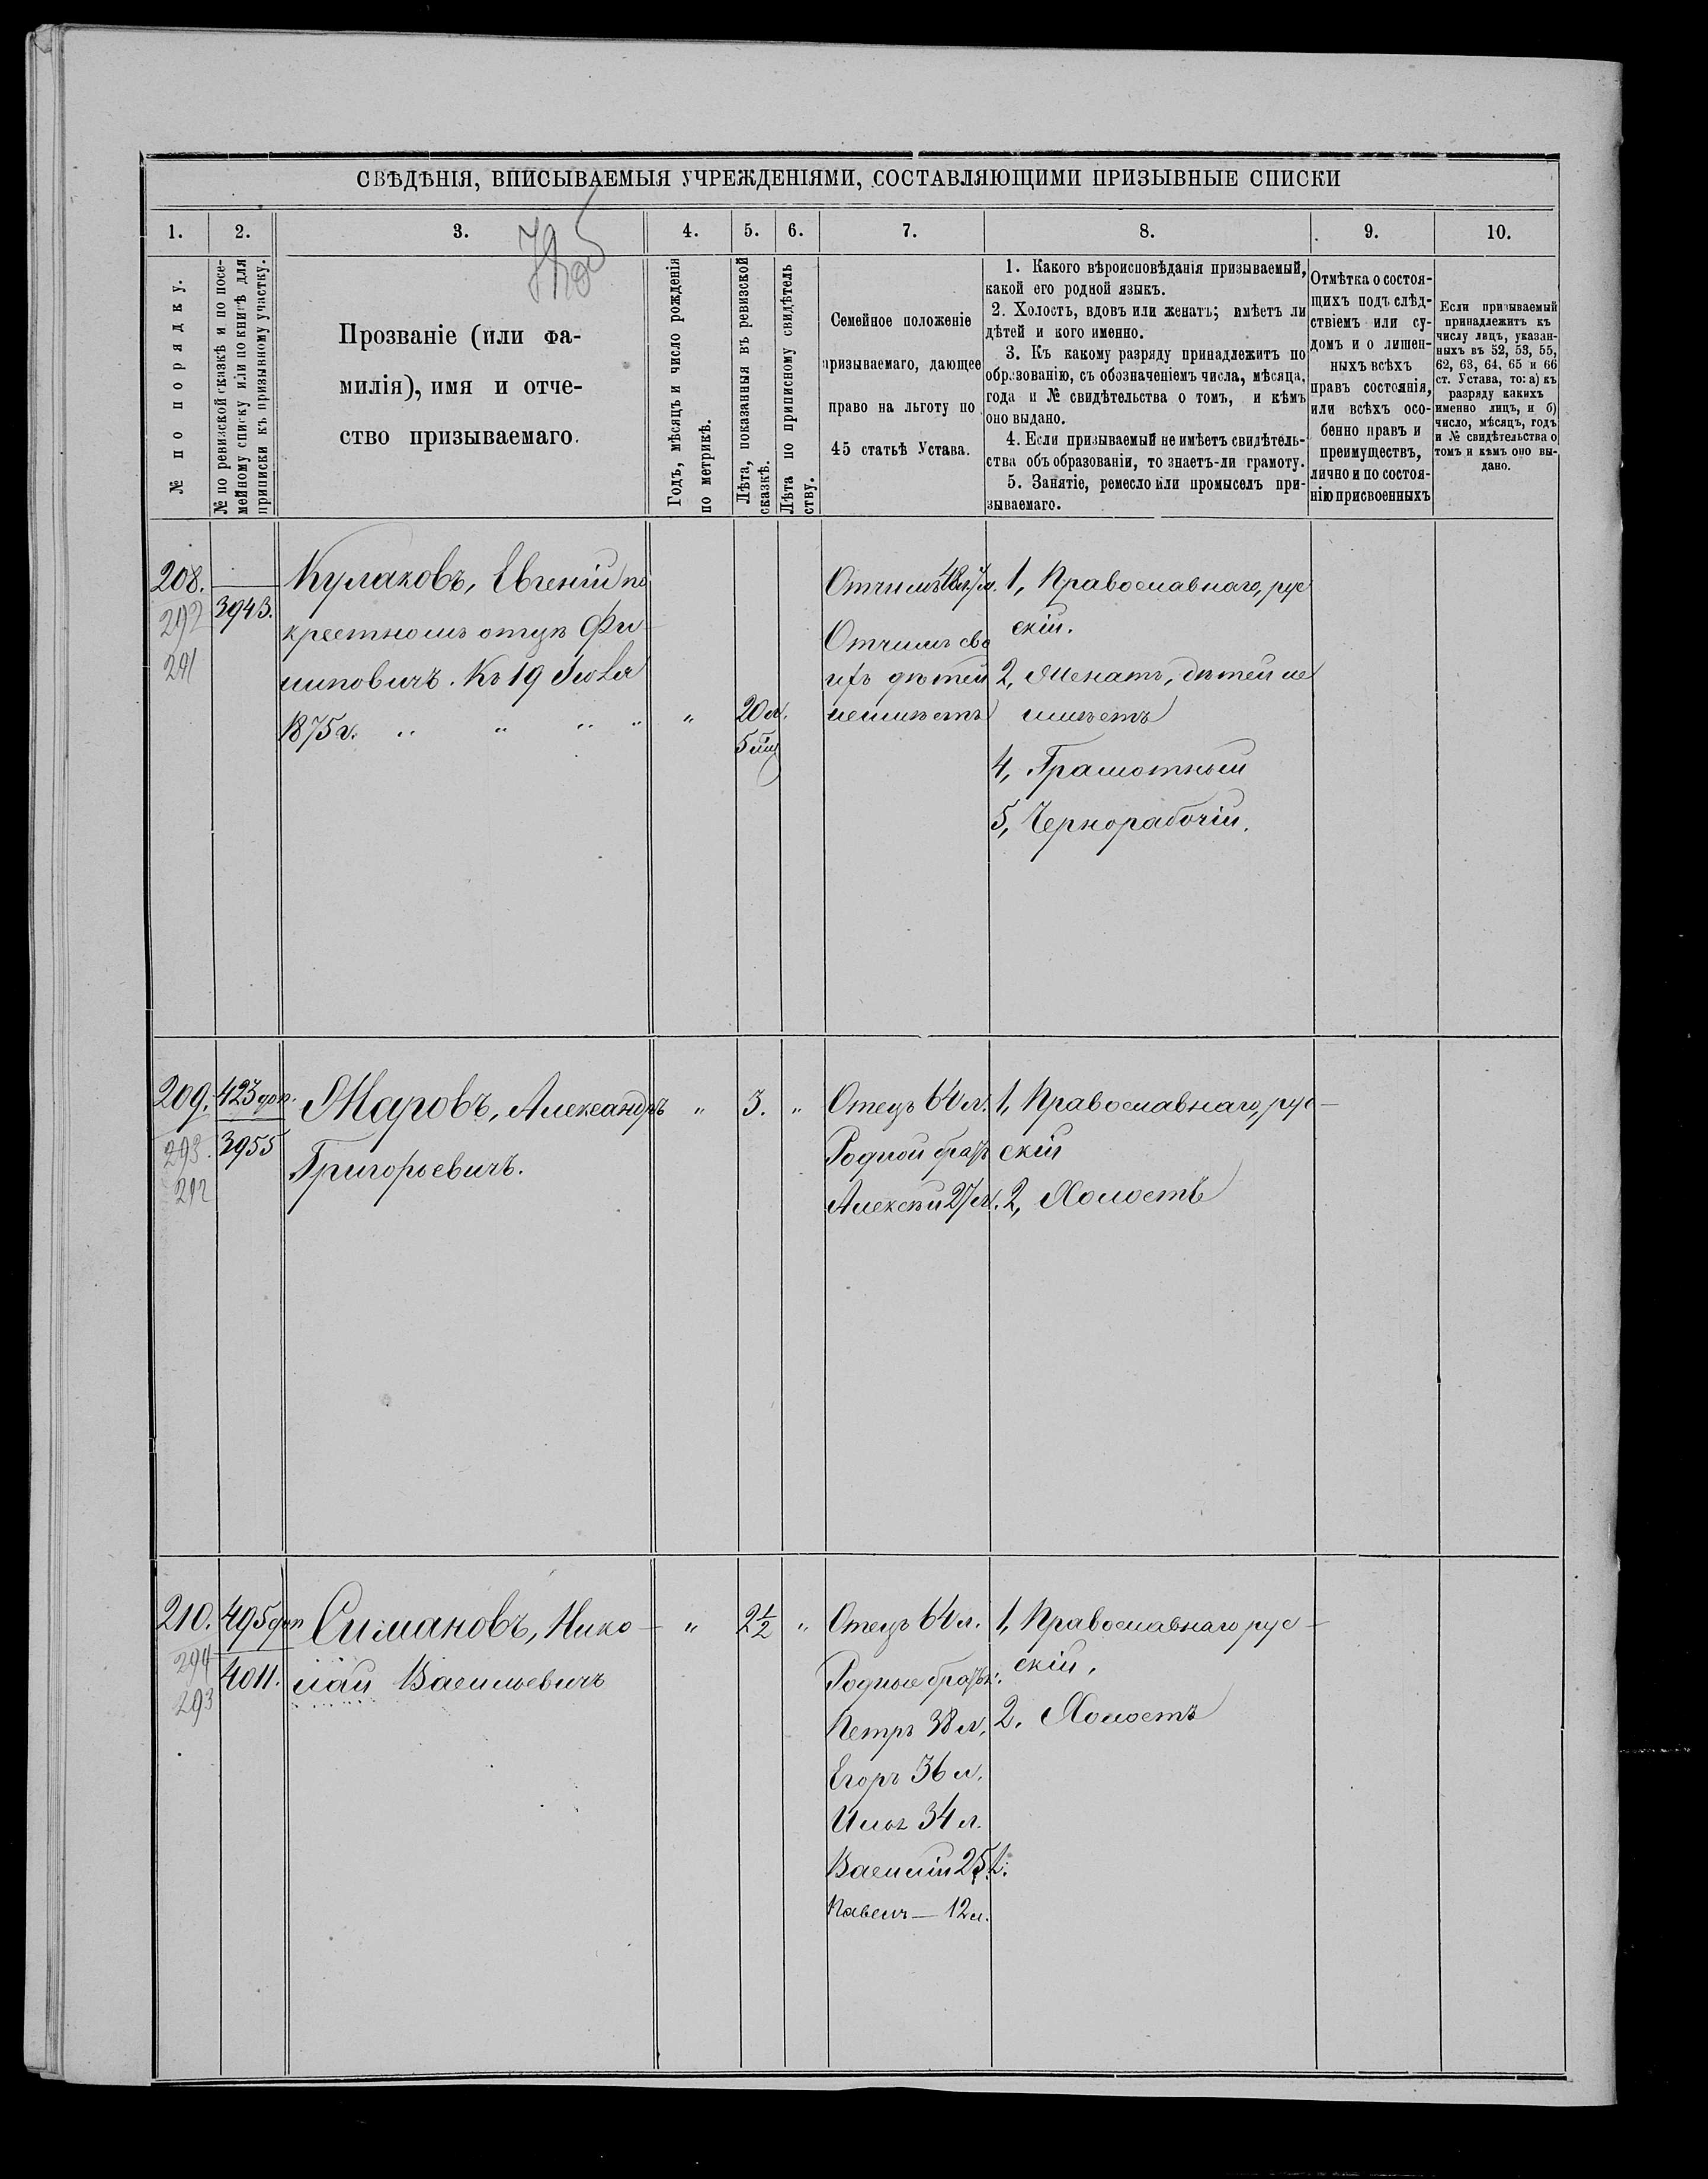 СВѢДѢНІЯ, ВПИСЫВАЕМЫЯ УЧРЕЖДЕНІЯМИ, СОСТАВЛЯЮЩИМИ ПРИЗЫВНЫЕ СПИСКИ
1. 2. 3. 4. 5. 6. 7. 8. 9. 10.
№ по порядку.
№ по ревизской сказкѣ и по посе-
мейному списку или по книгѣ для
приписки къ призывному участку.
Прозваніе (или фа-
милія), имя и отче-
ство призываемаго.
Годъ, мѣсяцъ и число рожденія
по метрикѣ.
Лѣта, показанныя въ ревизской
сказкѣ.
Лѣта по приписному свидѣтель
ству.
Семейное положеніе
призываемаго, дающее
право на льготу по
45 статьѣ Устава.
1. Какого вѣроисповѣданія призываемый,
какой его родной языкъ.
2. Холостъ, вдовъ или женатъ; имѣетъ ли
дѣтей и кого именно.
3. Къ какому разряду принадлежитъ по
образованію, съ обозначеніемъ числа, мѣсяца,
года и № свидѣтельства о томъ, и кѣмъ
оно выдано.
4. Если призываемый не имѣетъ свидѣтель-
ства объ образованіи, то знаетъ-ли грамоту.
5. Занятіе, ремесло или промыселъ при-
зываемаго.
Отмѣтка о состоя-
щихъ подъ слѣд-
ствіемъ или су-
домъ и о лишен-
ныхъ всѣхъ
правъ состоянія,
или всѣхъ осо-
бенно правъ и
преимуществъ,
лично и по состоя-
нію присвоенныхъ
Если призываемый
принадлежитъ къ
числу лицъ, указан-
ныхъ въ 52, 53, 55,
62, 63, 64, 65 и 66
ст. Устава, то: а) къ
разряду какихъ
именно лицъ, и б)
число, мѣсяцъ, годъ
и № свидѣтельства о
томъ и кѣмъ оно вы-
дано.
208.
292
291
3943.
Кулаковъ, Евгеній по
крестномъ отцѣ Фи-
липовичъ. Къ 19 Іюля
1875 г. " " " "
"
20 л.
5 м.
Отчимъ
Отчимъ сво
ихъ дѣтей
неимѣетъ
1, Православнаго, рус
скій.
2, Женатъ, дѣтей не
имѣетъ
4, Грамотный
5, Чернорабочій.
209.
293.
292
423 доп.
3955
Маровъ, Александръ
Григорьевичъ.
" 3. "
Отецъ 64 л.
Родной братъ
Алексѣй 27 л.
1, Православнаго, рус-
скій
2, Холостъ
210.
294
293
495 доп
4011.
Симановъ, Нико-
лай Васильевичъ
" 2½ "
Отецъ 64 л.
Родные братья:
Петръ 38 л.
Егоръ 36 л.
Илья 34 л.
Василій 25 л.
Павелъ — 12 л.
1, Православнаго рус-
скій,
2. Холостъ